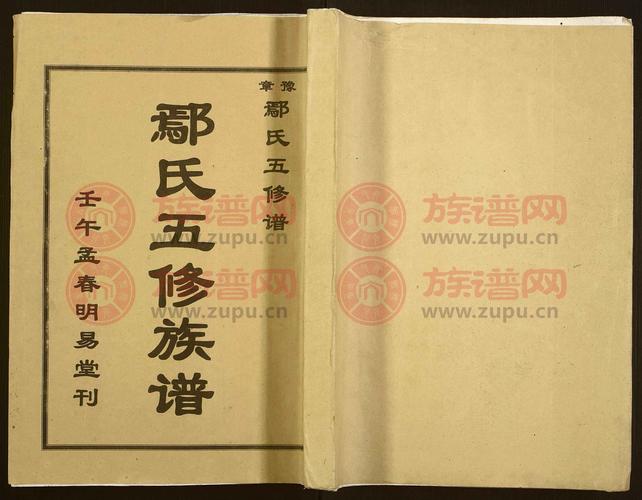 豫章
鄢氏五修谱
鄢氏五修族谱
壬午孟春明易堂刊
族谱网
www.zupu.cn
族谱网
www.zupu.cn
族谱网
www.zupu.cn
族谱网
www.zupu.cn